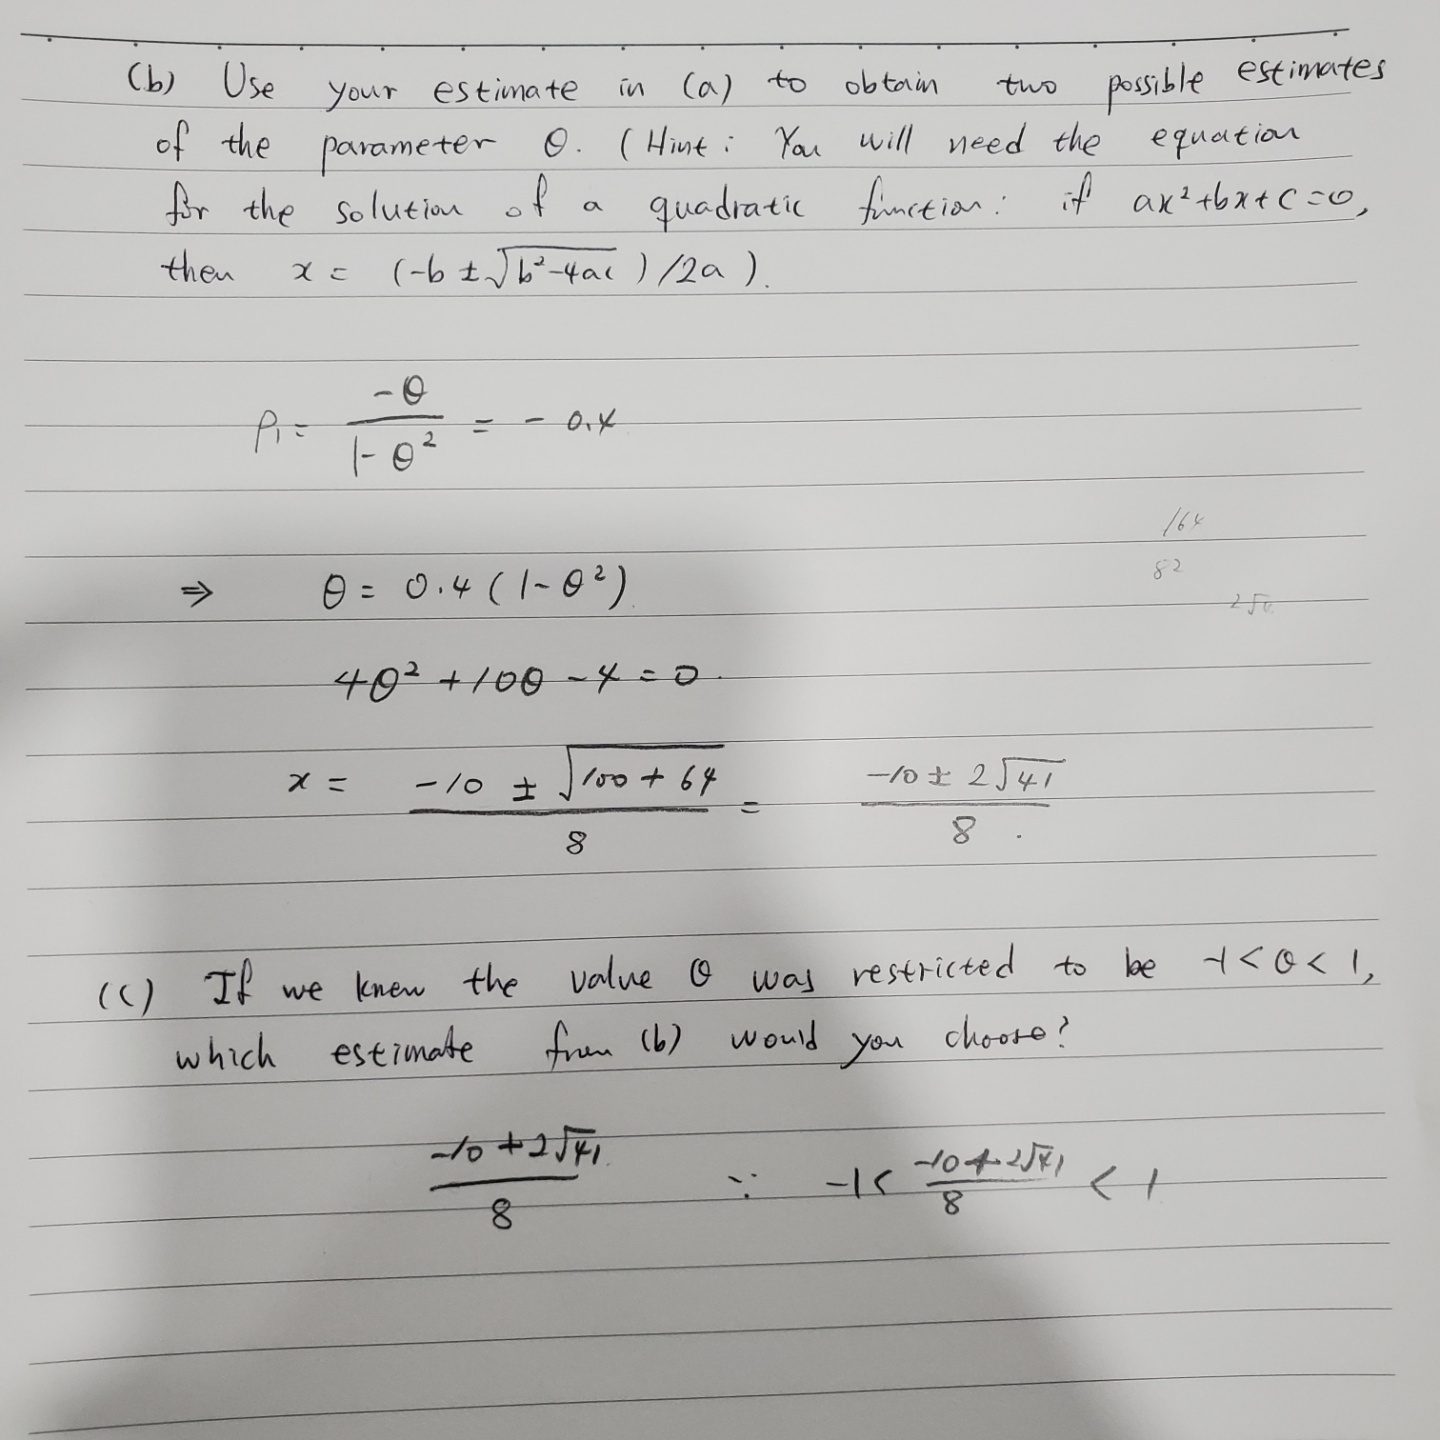 (b) Use your estimate in (a) to obtain two possible estimates
of the parameter θ. (Hint: You will need the equation
for the solution of a quadratic function: if ax²+bx+c=0,
then x = (-b ± √b²-4ac) /2a).
ρ₁ = -θ / 1-θ² = -0.4
164
82
⇒ θ = 0.4 (1-θ²)
4θ² + 10θ - 4 = 0.
x = -10 ± √100 + 64 / 8 = -10 ± 2√41 / 8.
(c) If we knew the value θ was restricted to be -1<θ<1,
which estimate from (b) would you choose?
-10 + 2√41 / 8 ∵ -1 < -10 + 2√41 / 8 < 1